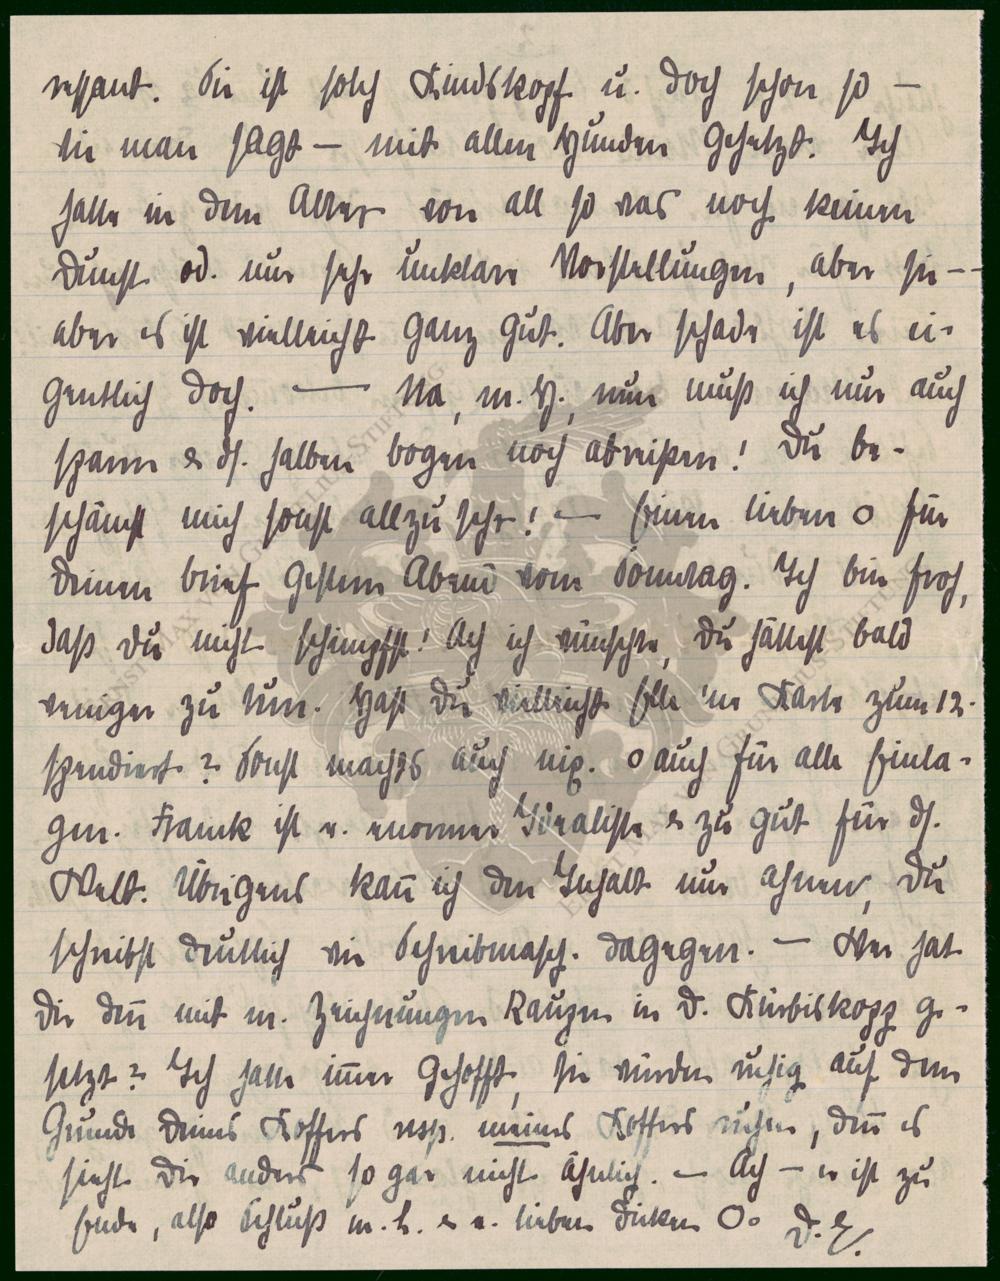 ressant. Sie ist solch Kindskopf u. doch schon so –
wie man sagt – mit allen Hunden gehetzt. Ich
hatte in dem Alter von all so was noch keinen
Dunst od. nur sehr unklare Vorstellungen, aber sie --
aber es ist vielleicht ganz gut. Aber schade ist es ei-
gentlich doch. — Na, m. H., nun muß ich nur auch
spann & ds. halben bogen noch abreißen! Du be-
schämst mich sonst allzu sehr! — Einen lieben o für
Deinen brief gestern Abend vom Sonntag. Ich bin froh,
daß Du nicht schimpfst! Ach ich wünschte, Du hättest bald
weniger zu tun. Hast Du vielleicht Elle 'ne Karte zum 12.
spendiert? Sonst machts auch nix. o auch für alle Einla-
gen. Franck ist e. enormer Idealiste & zu gut für ds.
Welt. Übrigens kan̄ ich den Inhalt nur ahnen, Du
schreibst deutlich wie Schreibmasch. dagegen. — Wer hat
Dir den̄ mit m. Zeichnungen Raupen in d. Kürbiskopp ge-
setzt? Ich hatte im̄er gehofft, sie würden ruhig auf dem
Grunde Deines Koffers resp. meines Koffers ruhen, den̄ es
sieht Dir anders so gar nicht ähnlich. — Ach – er ist zu
Ende, also Schluß m. H. & e. lieben dicken O. D. E.
ERNST MAX VON GRUNELIUS-STIFTUNG
ERNST MAX VON GRUNELIUS-STIFTUNG